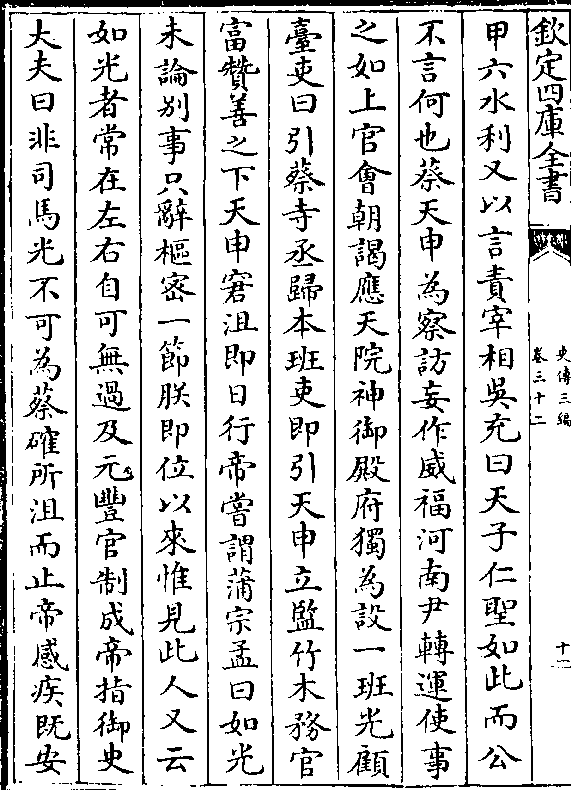 欽定四庫全書
史傳三編
卷三十二
十二
甲六水利又以言責宰相吳充曰天子仁聖如此而公
不言何也蔡天申為察訪妄作威福河南尹轉運使事
之如上官會朝謁應天院神御殿府獨為設一班光顧
臺吏曰引蔡寺丞歸本班吏即引天申立監竹木務官
富贊善之下天申窘沮即日行帝嘗謂蒲宗孟曰如光
未論别事只辭樞宻一節朕即位以來惟見此人又云
如光者常在左右自可無過及元豐官制成帝指御史
大夫曰非司馬光不可為蔡確所沮而止帝感疾既安